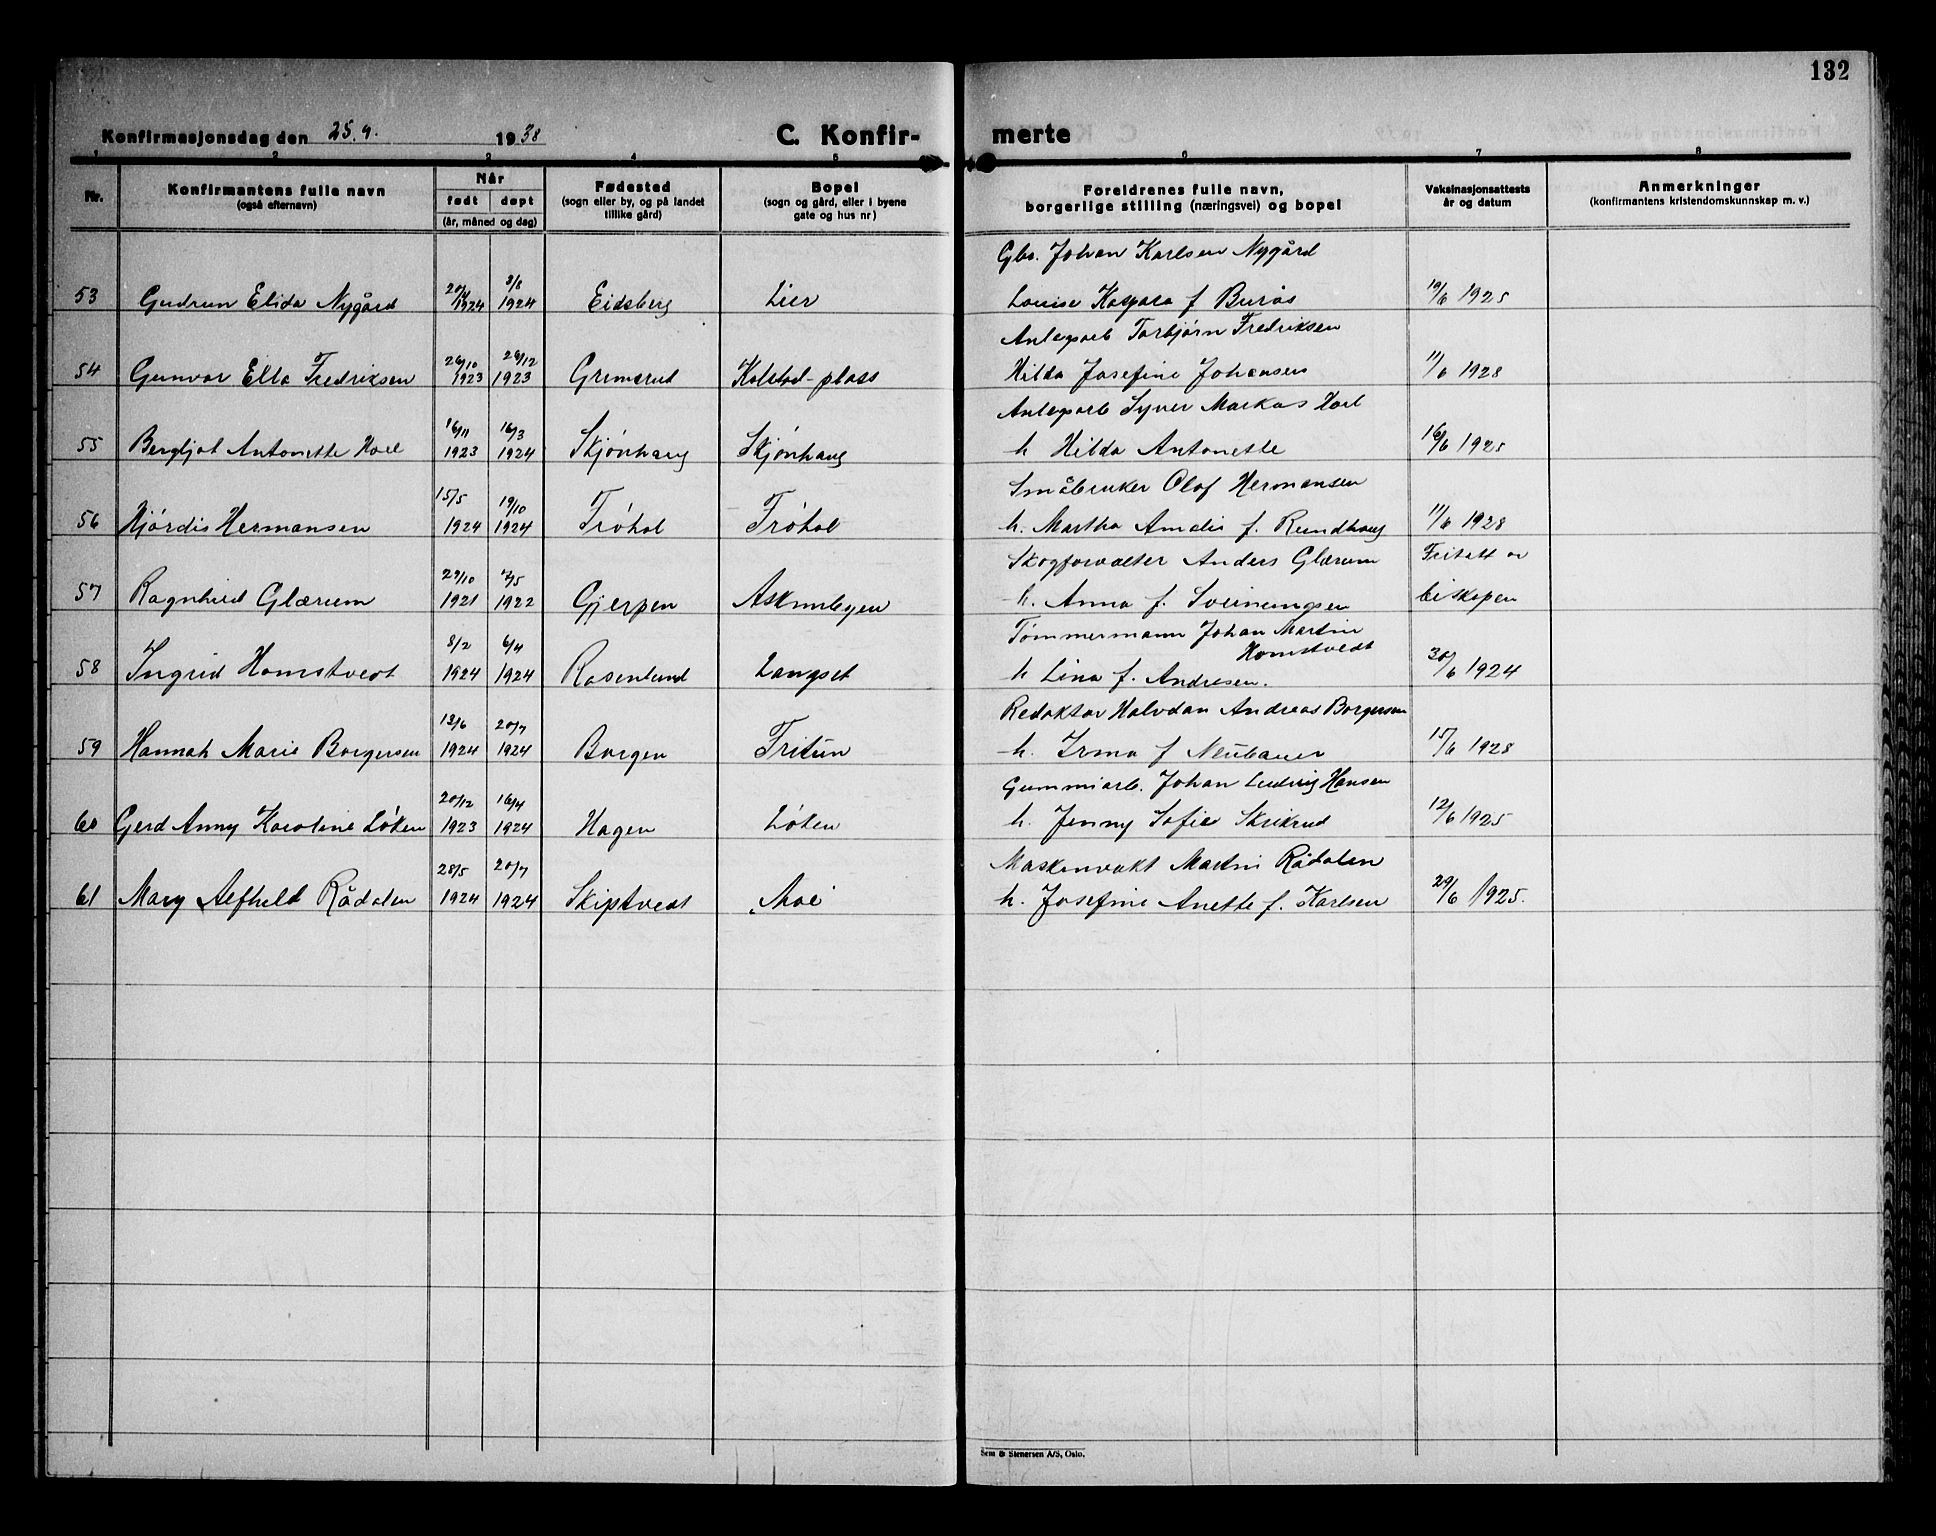 132
Konfirmasjonsdag den 25.9. 1938
C. Konfir-
merte
1 2 3 4 5 6 7 8
Nr.
Konfirmantens fulle navn
(også efternavn)
Når
født døpt
(år, måned og dag)
Fødested
(sogn eller by, og på landet
tillike gård)
Bopel
(sogn og gård, eller i byene
gate og hus nr)
Foreldrenes fulle navn,
borgerlige stilling (næringsvei) og bopel
Vaksinasjonsattests
år og datum
Anmerkninger
(konfirmantens kristendomskunnskap m. v.)
Gbr. Johan Karlsen Nygård
53 Gudrun Elida Nygård 1924 3/8 1924 Eidsberg Lier Louise Kaspara f Burås 19/6 1925
Anlegsarb Torbjørn Fredriksen
54 Gunvor Ella Fredriksen 26/10 1923 26/12 1923 Gremsrud Kolstad-plass Hilda Josefine Johansen 11/6 1928
Anlegsarb Syver Markus Hoel
55 Bergljot Antonette Hoel 16/11 1923 16/3 1924 Skjønhaug Skjønhaug h Hilda Antonette 16/6 1925
Småbruker Olaf Hermansen
56 Hjørdis Hermansen 15/5 1924 19/10 1924 Trøhol Trøhol h. Martha Amelis f. Rundhaug 11/6 1928
Skogforvalter Anders Glærum Fritatt av
57 Ragnhild Glærum 29/10 1921 7/5 1922 Gjerpen Askimbyen h. Anna f. Sveinungsen biskopen
Tømmermann Johan Martin
Homstvedt
58 Ingrid Homstvedt 8/2 1924 6/4 1924 Rosenlund Langset h Lina f. Andresen. 30/6 1924
Redaktør Halvdan Andreas Borgersen
59 Hannah Marie Borgersen 13/6 1924 20/7 1924 Borgen Tritun h. Irma f Neubauer 15/6 1928
Gummiarb. Johan Ludvig Hansen
60 Gerd Anny Karoline Løken 20/12 1923 16/4 1924 Hagen Løken h. Jenny Sofie Skikrud 12/6 1925
Maskinvakt Martin Rådalen
61 Mary Alfhild Rådalen 28/5 1924 20/7 1924 Skiptvedt Moe h. Josefine Anette f. Karlsen 29/6 1925.
Sem & Stenersen A/S, Oslo.